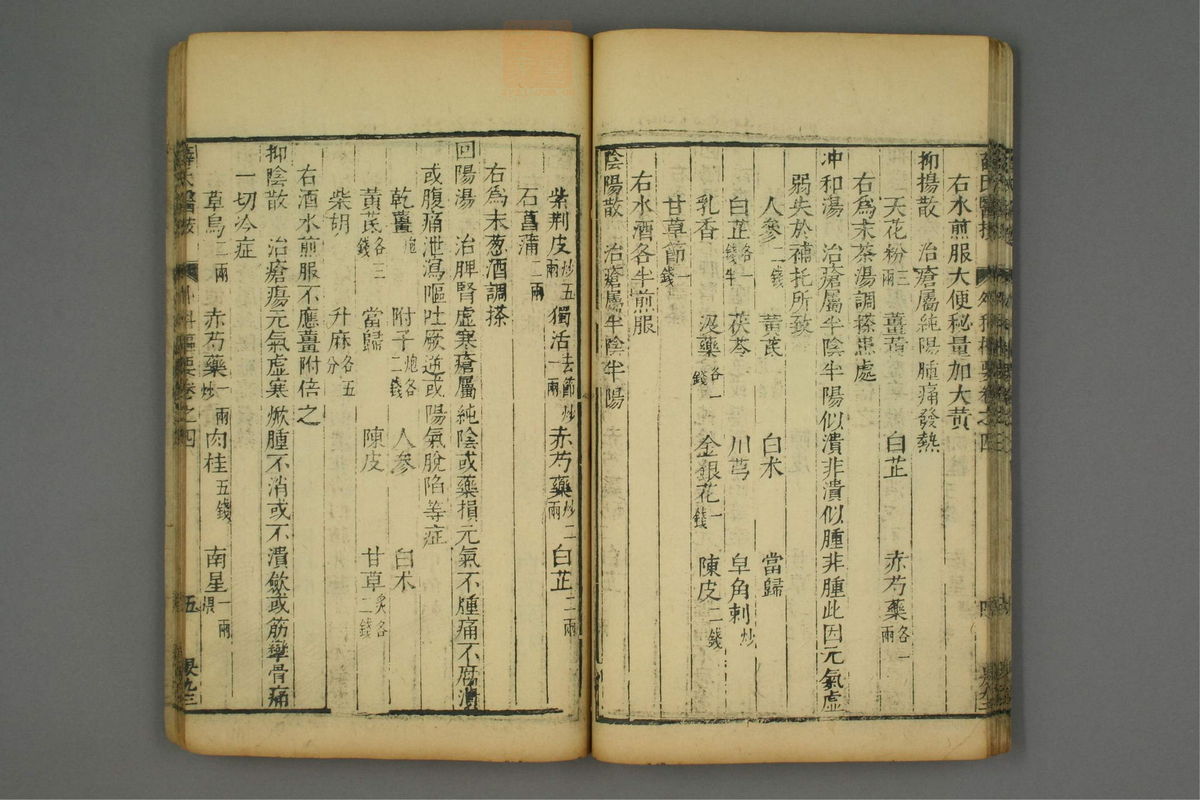 右水煎服大便秘量加大黃
抑揚散　治瘡屬純陽腫痛發熱
天花粉三兩　薑黃　白芷　赤芍藥各一兩
右爲末茶湯調搽患處
冲和湯　治瘡屬半陰半陽似潰非潰似腫非腫此因元氣虛
弱失於補托所致
人參二錢　黃芪　白朮　當歸
白芷各一錢半　茯苓　川芎　皁角刺炒
乳香　沒藥各一錢　金銀花一錢　陳皮二錢
甘草節一錢
右水酒各半煎服
陰陽散　治瘡屬半陰半陽
紫荆皮炒五兩　獨活去節炒一兩　赤芍藥炒二兩　白芷二兩
石菖蒲二兩
右爲末葱酒調搽
回陽湯　治脾腎虛寒瘡屬純陰或藥損元氣不腫痛不腐潰
或腹痛泄瀉嘔吐厥逆或陽氣脫陷等症
乾薑炮　附子炮各二錢　人參　白朮
黃芪各三錢　當歸　陳皮　甘草炙各二錢
柴胡　升麻各五分
右酒水煎服不應薑附倍之
抑陰散　治瘡瘍元氣虛寒焮腫不消或不潰斂或筋攣骨痛
一切冷症
草烏二兩　赤芍藥一兩炒　肉桂五錢　南星一兩煨
薛氏醫按　外科樞要卷之四　五